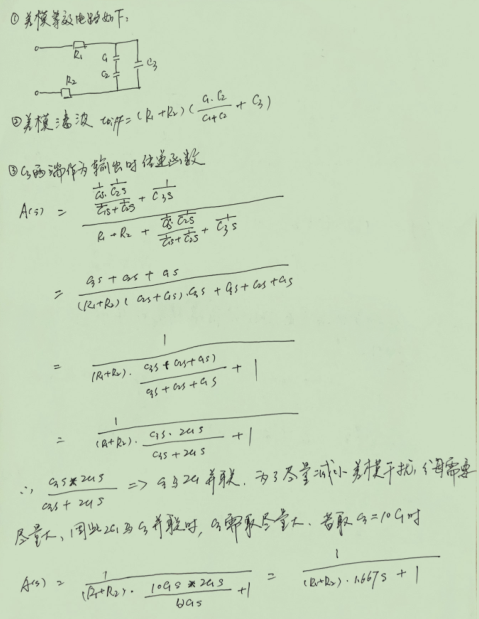 ① 差模等效电路如下:
R₁
C₁
C₂
C₃
R₂
② 差模滤波 τdiff = (R₁+R₂)(C₁·C₂/(C₁+C₂) + C₃)
③ C₃两端作为输出时 传递函数
A(s) = (1/C₁s · 1/C₂s / (1/C₁s + 1/C₂s) + 1/C₃s) / (R₁+R₂ + 1/C₁s · 1/C₂s / (1/C₁s + 1/C₂s) + 1/C₃s)
= (C₃s + C₂s + C₁s) / ((R₁+R₂)(C₂s+C₁s)·C₃s + C₃s + C₂s + C₁s)
= 1 / ((R₁+R₂)· C₃s(C₂s+C₁s) / (C₃s+C₂s+C₁s) + 1)
= 1 / ((R₁+R₂)· C₃s·2C₁s / (C₃s+2C₁s) + 1)
∴ C₃s*2C₁s / (C₃s+2C₁s) => C₃与2C₁并联. 为了尽量减小差模干扰, 分母需要
尽量大, 因此2C₁与C₃并联时, C₃要取尽量大. 若取 C₃=10C₁时
A(s) = 1 / ((R₁+R₂)· 10C₁s*2C₁s / 12C₁s + 1) = 1 / ((R₁+R₂)·1.667s + 1)